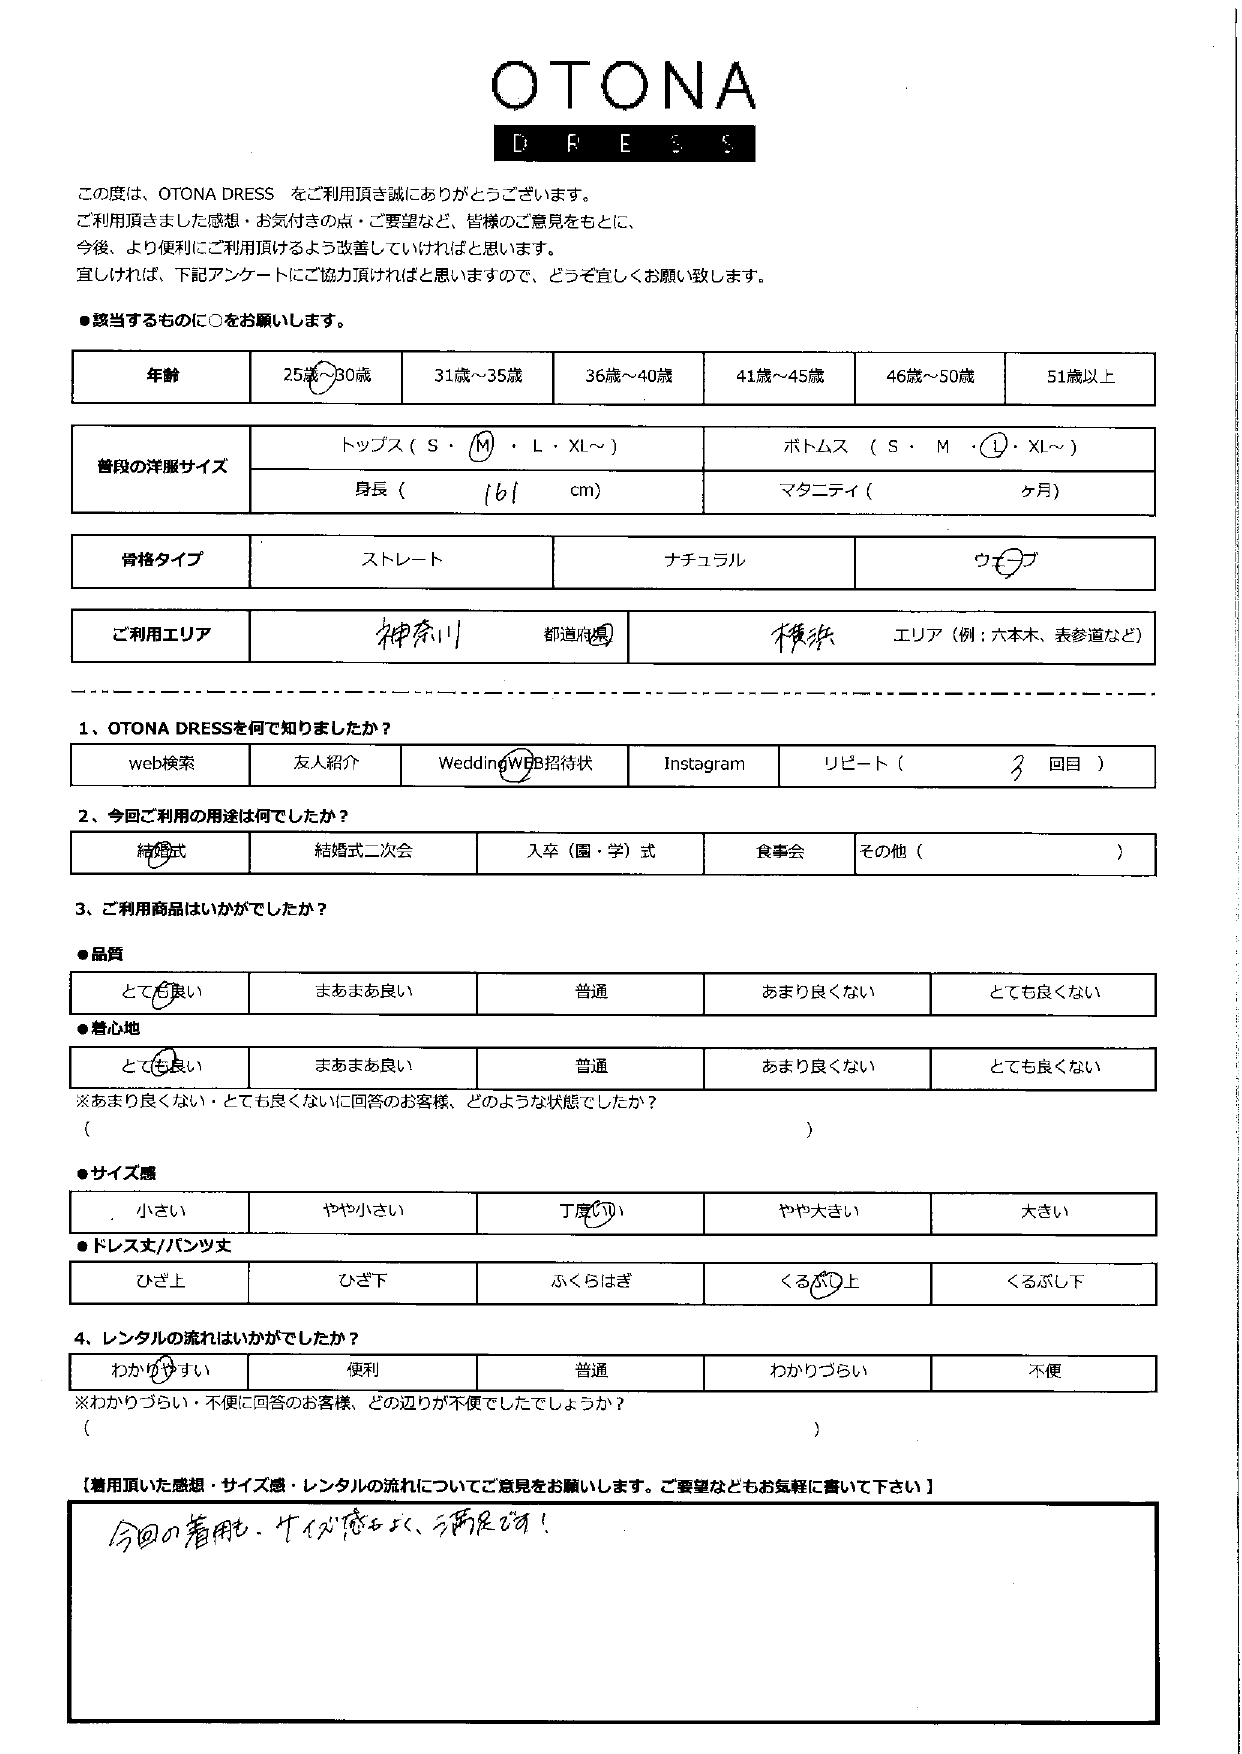 OTONA
DRESS
この度は、OTONA DRESS　をご利用頂き誠にありがとうございます。
ご利用頂きました感想・お気付きの点・ご要望など、皆様のご意見をもとに、
今後、より便利にご利用頂けるよう改善していければと思います。
宜しければ、下記アンケートにご協力頂ければと思いますので、どうぞ宜しくお願い致します。
●該当するものに○をお願いします。
年齢 25歳～30歳 31歳～35歳 36歳～40歳 41歳～45歳 46歳～50歳 51歳以上
普段の洋服サイズ トップス ( S ・ M ・ L ・ XL～ ) ボトムス ( S ・ M ・ L ・ XL～ )
身長 ( 161 cm) マタニティ ( ヶ月)
骨格タイプ ストレート ナチュラル ウェーブ
ご利用エリア 神奈川 都道府県 横浜 エリア（例；六本木、表参道など）
1、OTONA DRESSを何で知りましたか？
web検索 友人紹介 WeddingWEB招待状 Instagram リピート（ 3 回目 ）
2、今回ご利用の用途は何でしたか？
結婚式 結婚式二次会 入卒（園・学）式 食事会 その他（ ）
3、ご利用商品はいかがでしたか？
●品質
とても良い まあまあ良い 普通 あまり良くない とても良くない
●着心地
とても良い まあまあ良い 普通 あまり良くない とても良くない
※あまり良くない・とても良くないに回答のお客様、どのような状態でしたか？
( )
●サイズ感
小さい やや小さい 丁度いい やや大きい 大きい
●ドレス丈/パンツ丈
ひざ上 ひざ下 ふくらはぎ くるぶし上 くるぶし下
4、レンタルの流れはいかがでしたか？
わかりやすい 便利 普通 わかりづらい 不便
※わかりづらい・不便に回答のお客様、どの辺りが不便でしたでしょうか？
( )
【着用頂いた感想・サイズ感・レンタルの流れについてご意見をお願いします。ご要望などもお気軽に書いて下さい 】
今回の着用も、サイズ感もよく、満足です！